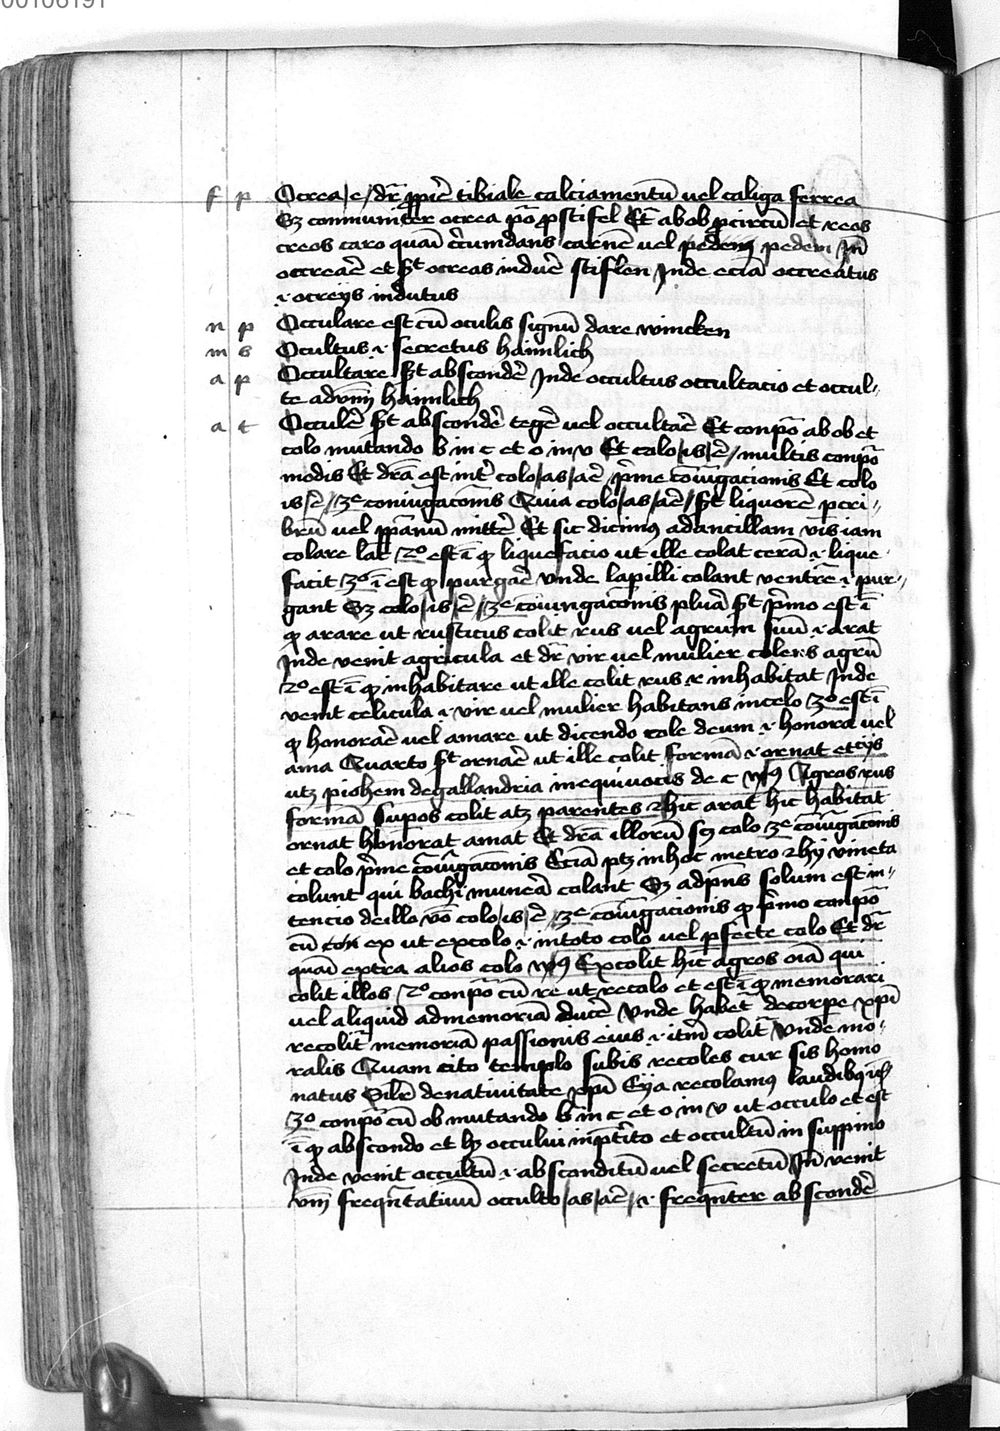 00106191
f p Ocrea / e / dr̄ ꝓpriē tibiale calciamentū vel caliga ferrea
Sꝫ communiter ocrea pō ꝓ stifel Et ab ob ꝙ circū et reos
creos caro quasi circumdans carnē vel pedem Jn̄
occreaē et s̄t ocreas induē stiflen Jnde eciā occreatus
.i. ocreijs indutus
n p Occulare est cū oculis signū dare wincken
m s Ocultus .i. secretus haimlich
a p Occultare s̄t abscondē Jnde occultus occultacio et occul-
te adverm̄ haimlich
a t Occulē s̄t abscondē tegē vel occultaē Et conpō ab ob et
colo mutando b in c et o in v Et colo / is / ē / multis conpō
modis Et dr̄a est int̄ colo / as / aē / p̄me coniugacionis Et colo
is / ē / 3e coniugacōnis Quia colo / as / aē / s̄t liquorē ꝑ cri-
brū vel ꝑ pannū mittē Et sic dicimꝰ ad ancillam vis iam
colare lac 2o est ī ꝙ liquefacio ut ille colat cerā .i. lique
facit 3o ī est ꝙ purgaē vnde lapilli colant ventrē .i. pur-
gant Sꝫ colo / is / ē / 3e coniungacōnis plura s̄t p̄mo est ī
ꝙ arare ut rusticus colit rus vel agrum suū .i. arat
Jnde venit agricula et dr̄ vir vel mulier colens agrū
2o est ī ꝙ inhabitare ut ille colit rus .i. inhabitat Jnde
venit celicula .i. vir vel mulier habitans in celo 3o est ī
ꝙ honoraē vel amare ut dicendo cole deum .i. honora vel
ama Quarto s̄t ornaē ut ille colit formā .i. ornat et ciis
utꝫ p̄ Johem de gallandria in equivocis de c vsꝰ Agros rus
formā supos colit atꝫ parentes hic arat hic habitat
ornat honorat amat Et dr̄a illorū scꝫ colo 3e coniugacōnis
et colo p̄me coniugacōnis Eciā ptꝫ in hoc metro hij vineta
colunt qui bachi munera colant Sꝫ ad p̄ns solum est in-
tencio de illo vo colo / is / ē / 3e coniugacionis ꝙ p̄mo conpō
cū ex ut excolo .i. in toto colo vel ꝑfecte colo Et dr̄
quasi extra alios colo vsꝰ Excolit hic agros oīa qui
colit illos 2o conpō cū re ut recolo et est ī ꝙ memorari
vel aliquid ad memoriā ducē Vnde habet de corpe xp̄i
recolit memoriā passionis eius .i. itm̄ colit Vnde mo-
ralis Quam cito templo subis recoles cur sis homo
natus Silr̄ de nativitate xp̄i Eya recolamꝰ laudibꝫ
3o conpō cū ob mutando b in c et o in v ut occulo et est
ī ꝙ abscondo et hꝫ occului in p̄trito et occultū in suppino
Jnde venit occultū .i. absconditū vel secretū Jn̄ venit
vm̄ freq̄ntativū occulto / as / aē / .i. freq̄nter abscondē